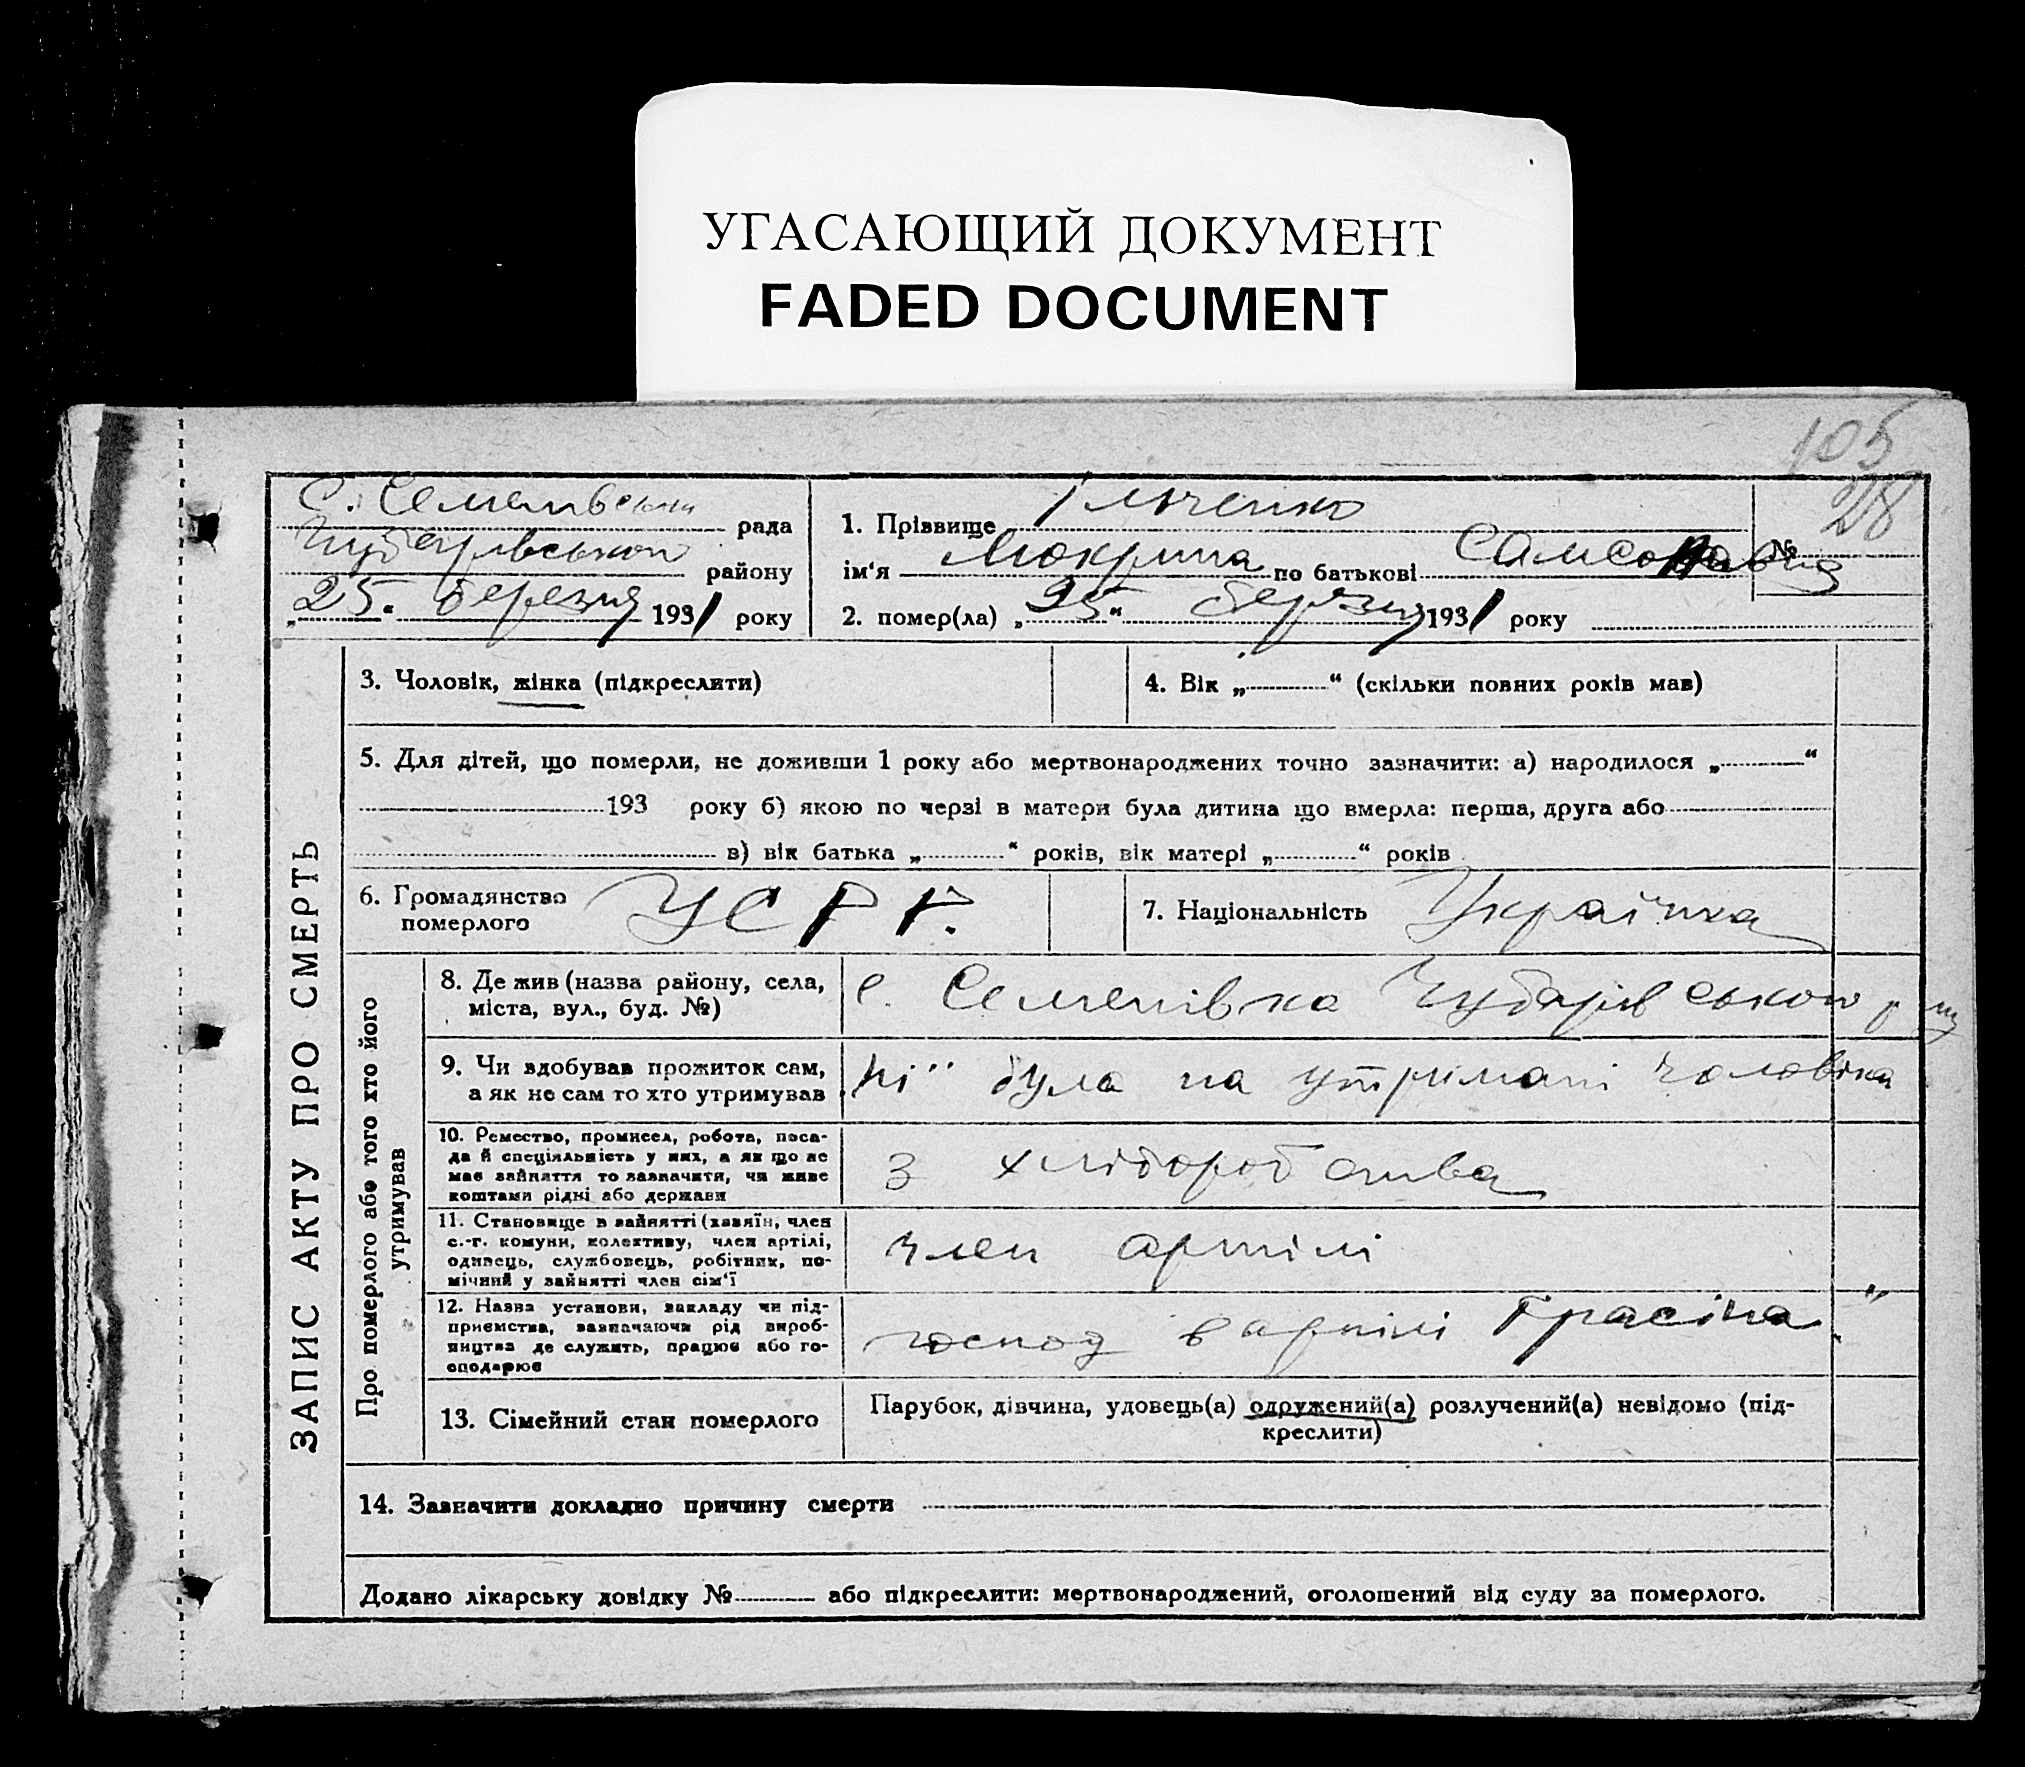 УГАСАЮЩИЙ ДОКУМЕНТ
FADED DOCUMENT
105
28
С. Семенівська рада
Чубарівського району
„25" березня 1931 року
1. Прізвище Ільченко
ім'я Мокрина по батькові Самсонавна
№
2. помер(ла) „25" березня 1931 року
ЗАПИС АКТУ ПРО СМЕРТЬ
3. Чоловік, жінка (підкреслити)
4. Вік „ " (скільки повних років мав)
5. Для дітей, що померли, не доживши 1 року або мертвонароджених точно зазначити: а) народилося „ "
193 року б) якою по черзі в матери була дитина що вмерла: перша, друга або
в) вік батька „ " років, вік матері „ " років
6. Громадянство
померлого
УСРР.
7. Національність Українка
Про померлого або того хто його
утримував
8. Де жив (назва району, села,
міста, вул., буд. №)
с. Семенівка Чубарівського р
9. Чи здобував прожиток сам,
а як не сам то хто утримував
ні була на утримані чоловіка
10. Ремество, промисел, робота, поса-
да й спеціяльність у них, а як що не
має зайняття то зазначити, чи живе
коштами рідні або держави
з хліборобства
11. Становище в зайнятті (хазяїн, член
с.-г. комуни, колективу, член артілі,
одинець, службовець, робітник, по-
мічний у зайнятті член сім'ї
член артілі
12. Назва установи, закладу чи під-
приємства, зазначаючи рід вироб-
ництва де служить, працює або го-
сподарює
господ в артілі Грасіна"
13. Сімейний стан померлого
Парубок, дівчина, удовець(а) одружений(а) розлучений(а) невідомо (під-
креслити)
14. Зазначити докладно причину смерти
Додано лікарську довідку № або підкреслити: мертвонароджений, оголошений від суду за померлого.